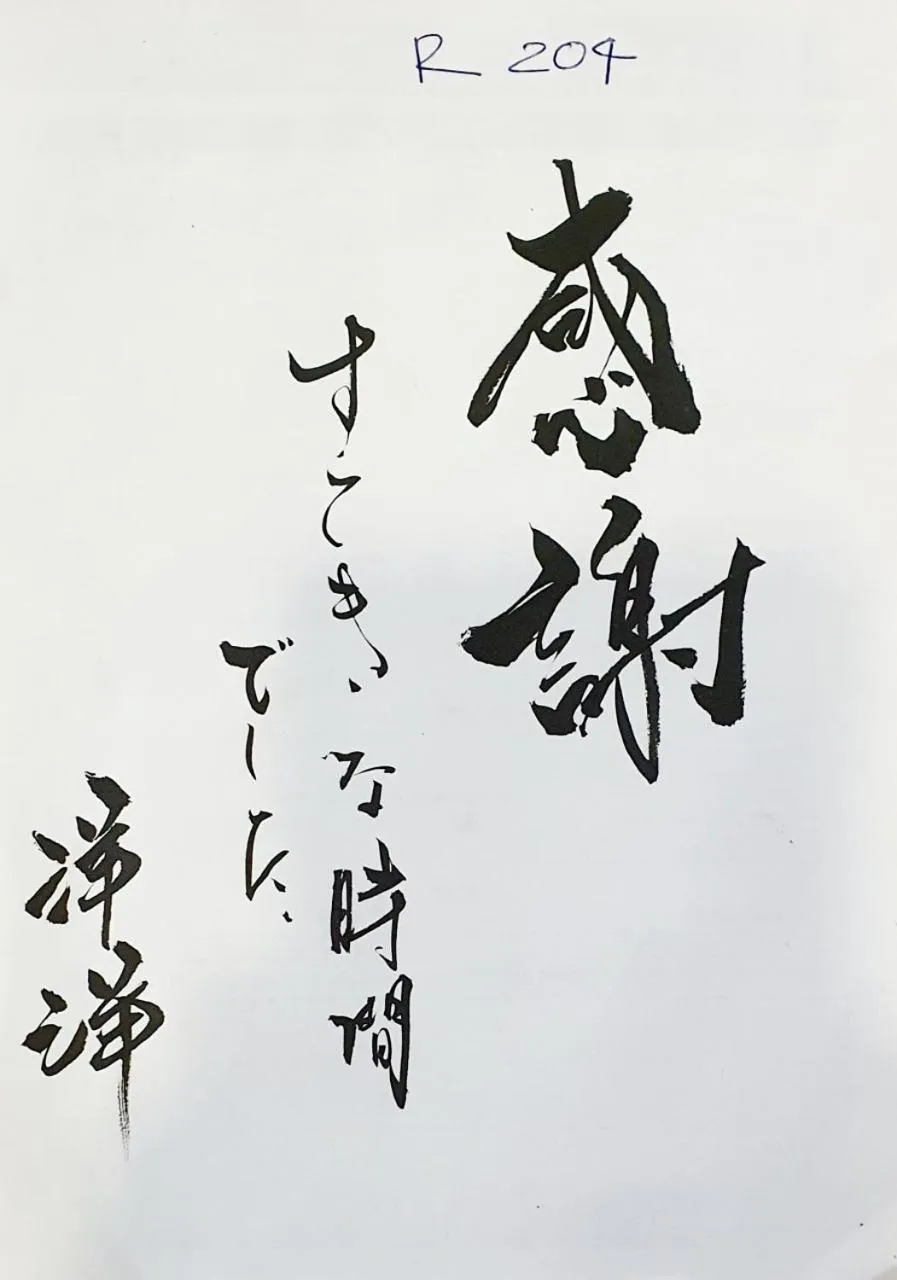 R 204
感謝
すてきな時間
でした
洋洋